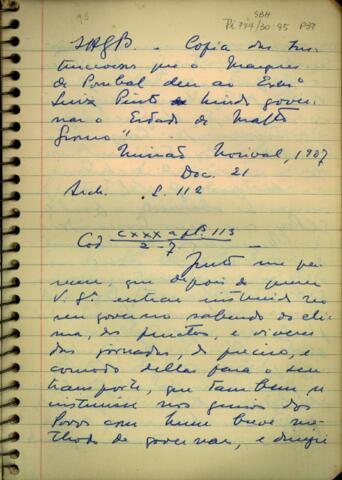 93
SBH
Pi 794/30.95 P39
- Copia das Ins
trucções que o Marquez
de Pombal deu ao Exmo
Luiz Pinto hindo gover-
nar o Estado de Matto
Grosso"
1907
Doc. 21
Arch. 2.112
Cod CXXX a pl. 113
2-7
Justo me pa
receu, que depois de querer
V. Sª entrar instruido no
seu governo sabendo do cli
ma, dos fructos, e divere
das jornadas, do preciso, e
comodo dellas para o seu
transporte, que tambem se
instruisse nos genios dos
Povos com hum breve me-
thodo de governar, e dirigi